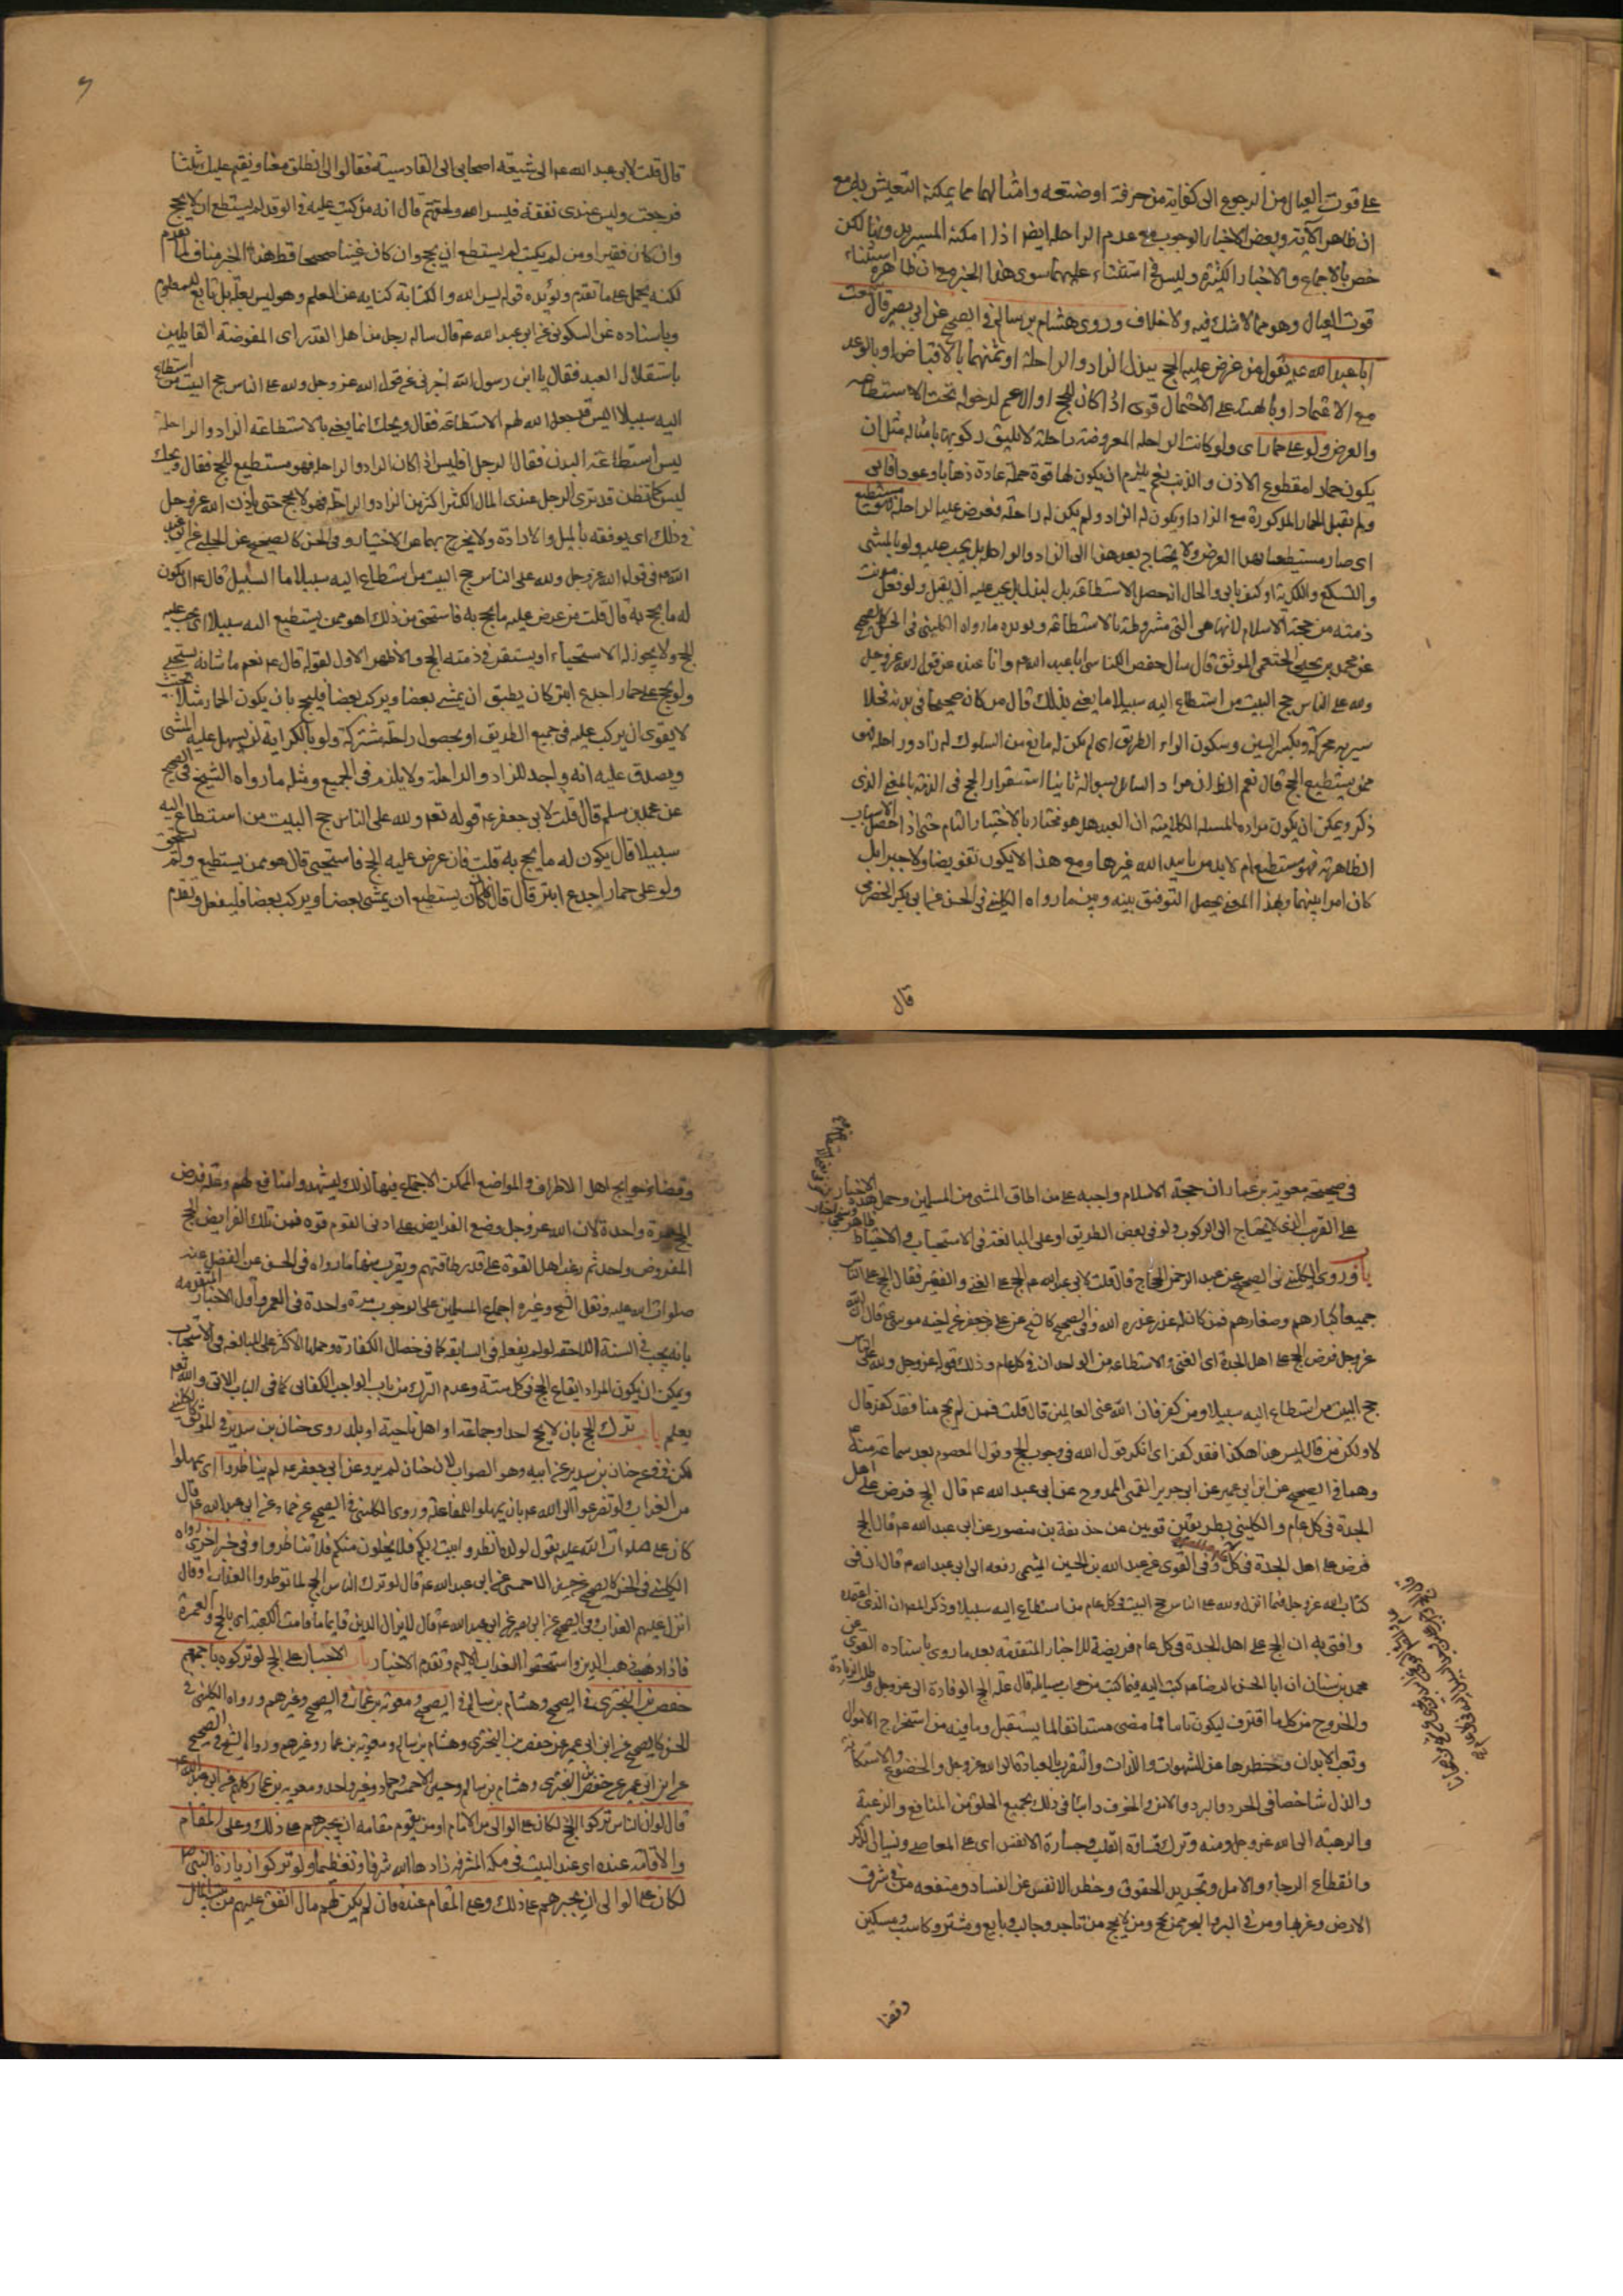 على قوت العيال من الرجوع الى كفاية من حرفة او ضيعة وامثالهما مما يمكنه التعيش به مع
ان ظاهر الآية وبعض الاخبار الوجوب مع عدم الراحلة ايضا اذا امكنه المسير بدونها لكن
خص بالاجماع والاخبار الكثيرة وليس في استثناء عليهما سوى هذا الخبر مع ان ظاهره استثناء
قوت العيال وهو مما لا شك فيه ولا خلاف وروى هشام بن سالم في الصحيح عن ابي بصير قال سمعت
ابا عبد الله عم يقول من عرض عليه الحج ببذل الزاد والراحلة او ثمنهما بالاقباض او بالوعد
مع الاعتماد او بالهبة على الاحتمال قوى اذا كان للحج او الاعم لدخوله تحت الاستطاعة
والعرض ولو على حمار اى ولو كانت الراحلة المعروضة راحلة لا يليق ركوبها بامثاله مثل ان
يكون حمارا مقطوع الاذن والذنب نعم يلزم ان يكون لها قوة حمله عادة ذهابا وعودا فابى
ولم يقبل الحمار المذكورة مع الزاد او يكون له الزاد ولم يكن له راحلة فعرض عليه الراحلة فهو مستطيع
اى صار مستطيعا بهذا العرض ولا يحتاج بعد هذا الى الزاد والراحلة بل يجب عليه ولو بالمشى
والتسكع والكدية او كيف يابى والحال انه حصل الاستطاعة بل البذل بل يجب عليه ان يقبل ولو فعل برئت
ذمته من حجة الاسلام لانها هى التى مشروطة بالاستطاعة ويؤيده ما رواه الكليني في الحسن كالصحيح
عن محمد بن يحيى الخثعمي الموثق قال سال حفص الكناسي ابا عبد الله عم وانا عنده عن قول الله عز وجل
ولله على الناس حج البيت من استطاع اليه سبيلا ما يعنى بذلك قال من كان صحيحا في بدنه مخلا
سربه محركة وبكسر السين وسكون الراء الطريق اى لم يكن له مانع من السلوك له زاد وراحلة فهو
ممن يستطيع الحج قال نعم الظاهر ان مراد السائل بسؤاله ثانيا استقرار الحج في الذمة بالمعنى الذى
ذكر ويمكن ان يكون مراده المسئلة الكلامية ان العبد هل هو مختار بالاختيار التام حتى اذا حصل الاسباب
الظاهرية فهو مستطيع ام لا بد من تاييد الله غيرها ومع هذا لا يكون تفويضا ولا جبرا بل
كان امرا بينهما وبهذا المعنى يحصل التوفيق بينه وبين ما رواه الكليني في الحسن عن ابي بكر الحضرمي
قال
قال قلت لابي عبد الله عم انى شيعت اصحابى الى القادسية فقالوا لى انطلق معنا ونقيم عليك ثلثا
فرجعت وليس عندى نفقة فيسر الله ولحقتهم قال انه من كتب عليه في الوفد لم يستطع ان لا يحج
وان كان فقيرا ومن لم يكتب لم يستطع ان يحج وان كان غنيا صحيحا فظاهر هذا الخبر مناف لما تقدم
لكنه يحمل على ما تقدم ويؤيده قوله يسر الله والكتابة كناية عن العلم وهو ليس بعلة بل تابع للمعلوم
وباسناده عن السكوني عن ابي عبد الله عم قال ساله رجل من اهل القدر اى المفوضة القائلين
باستقلال العبد فقال يا ابن رسول الله اخبرنى عن قول الله عز وجل ولله على الناس حج البيت من استطاع
اليه سبيلا اليس قد جعل الله لهم الاستطاعة فقال ويحك انما يعنى بالاستطاعة الزاد والراحلة
ليس استطاعة البدن فقال الرجل افليس اذا كان الزاد والراحلة فهو مستطيع للحج فقال ويحك
ليس كما تظن قد ترى الرجل عنده المال الكثير اكثر من الزاد والراحلة فهو لا يحج حتى ياذن الله عز وجل
في ذلك اى يوفقه بالميل والارادة ولا يخرج بهما عن الاختيار وفي الحسن كالصحيح عن الحلبي عن ابي عبد
الله عم في قول الله عز وجل ولله على الناس حج البيت من استطاع اليه سبيلا ما السبيل قال ان يكون
له ما يحج به قال قلت من عرض عليه ما يحج به فاستحيى من ذلك اهو ممن يستطيع اليه سبيلا اى يجب عليه
الحج ولا يجوز له الاستحياء او يستقر في ذمته الحج والاظهر الاول لقوله قال عم نعم ما شانه يستحيى
ولو يحج على حمار اجدع ابتر كان يطيق ان يمشى بعضا ويركب بعضا فليحج بان يكون الحمار مثلا بحيث
لا يقوى ان يركب عليه في جميع الطريق او بحصول راحلة مشتركة ولو بالكراية لو يسهل عليه المشى
ويصدق عليه انه واجد للزاد والراحلة ولا يلزم في الجميع ومثله ما رواه الشيخ في الصحيح
عن محمد بن مسلم قال قلت لابي جعفر عم قوله تعم ولله على الناس حج البيت من استطاع اليه
سبيلا قال يكون له ما يحج به قلت فان عرض عليه الحج فاستحيى قال هو ممن يستطيع ولم يستحيى
ولو على حمار اجدع ابتر قال فان كان يستطيع ان يمشى بعضا ويركب بعضا فليفعل وتقدم
في صحيحة معوية بن عمار ان حجة الاسلام واجبة على من اطاق المشى من المسلمين وحمل هذه الاخبار
على القرب الذى لا يحتاج الى الركوب ولو في بعض الطريق او على المبالغة في الاستحباب والاحتياط
وروى الكليني في الصحيح عن عبد الرحمن الحجاج قال قلت لابي عبد الله عم الحج على الغنى والفقير فقال الحج على الناس
جميعا كبارهم وصغارهم فمن كان له عذر عذره الله وفي الصحيح كالشيخ عن على بن جعفر عن اخيه موسى عم قال ان الله
عز وجل فرض الحج على اهل الجدة اى الغنى والاستطاعة من الوجدان في كل عام وذلك قوله عز وجل ولله على الناس
حج البيت من استطاع اليه سبيلا ومن كفر فان الله غنى عن العالمين قال قلت فمن لم يحج منا فقد كفر قال
لا ولكن من قال ليس هذا هكذا فقد كفر اى انكر قول الله في وجوب الحج وقول المعصوم بعد سماعه منه
وهما في الصحيح عن ابن ابي عمير عن ابي جرير القمي الممدوح عن ابي عبد الله عم قال الحج فرض على اهل
الجدة في كل عام والكليني بطريقين قويين عن حذيفة بن منصور عن ابي عبد الله عم قال الحج
فرض على اهل الجدة في كل عام وفي القوى عن عبد الله بن الحسين الميثمي رفعه الى ابي عبد الله عم قال ان في
كتاب الله عز وجل فيما انزل ولله على الناس حج البيت في كل عام من استطاع اليه سبيلا وذكر المص ان الذى اعتمده
وافتى به ان الحج على اهل الجدة في كل عام فريضة للاخبار المتقدمة بعد ما روى باسناده القوى عن
محمد بن سنان ان ابا الحسن الرضا عم كتب اليه فيما كتب من جواب مسائله قال علة الحج الوفادة الى الله عز وجل وطلب الزيادة
والخروج من كل ما اقترف ليكون تائبا مما مضى مستانفا لما يستقبل وما فيه من استخراج الاموال
وتعب الابدان وحظرها عن الشهوات واللذات والتقرب بالعبادة الى الله عز وجل والخضوع والاستكانة
والذل شاخصا في الحر والبرد والامن والخوف دائبا في ذلك بجميع الخلق من المنافع والرغبة
والرهبة الى الله عز وجل ومنه وترك قساوة القلب وجسارة الانفس اى على المعاصى ونسيان الذكر
وانقطاع الرجاء والامل وتجديد الحقوق وحظر الانفس عن الفساد ومنفعة من في شرق
الارض وغربها ومن في البر والبحر ممن يحج ومن لا يحج من تاجر وجالب وبايع ومشتر وكاسب ومسكين
وقضا
وقضاء حوائج اهل الاطراف والمواضع الممكن الاجتماع فيها كذلك ليشهدوا منافع لهم وعلة فرض
الحج مرة واحدة لان الله عز وجل وضع الفرايض على ادنى القوم قوة فمن تلك الفرايض الحج
المفروض واحد ثم رغب اهل القوة على قدر طاقتهم ويقرب منها ما رواه في الحسن عن الفضل عنه
صلوات الله عليه ونقل الشيخ وغيره اجماع المسلمين على الوجوب مرة واحدة في العمر واول الاخبار المتقدمة
بانه يجب في السنة اللاحقة لو لم يفعله في السابقة كما في خصال الكفارة وحملها الاكثر على المبالغة والاستحباب
ويمكن ان يكون المراد ايقاع الحج في كل سنة وعدم الترك من باب الواجب الكفائى كما في الباب الاتى والله تعم
يعلم باب ترك الحج بان لا يحج احد او جماعة او اهل ناحية او بلد روى حنان بن سدير في الموثق كالكليني
لكن في فيه عن حنان بن سدير عن ابيه وهو الصواب لان حنان لم يرو عن ابي جعفر عم لم يناظروا اى يمهلوا
من العذاب ولو تضرعوا الى الله عم بان يمهلوا للمفاعلة وروى الكليني في الصحيح عن حماد عن ابي عبد الله عم قال
كان على صلوات الله عليه يقول لولده انظروا بيت ربكم فلا يخلون منكم فلا تناظروا وفي خبر اخرى رواه
الكليني في الحسن كالصحيح عن حسين الاحمسي عن ابي عبد الله عم قال لو ترك الناس الحج لما نوظروا العذاب او قال
انزل عليهم العذاب وفي الصحيح عن ابي بصير عن ابي عبد الله عم قال لا يزال الدين قائما ما قامت الكعبة اى بالحج والعمرة
فاذا ذهب ذهب الدين واستحقوا العذاب الاليم وتقدم الاخبار باب الاجبار على الحج لو تركوه باجمعهم
حفص بن البخترى في الصحيح وهشام بن سالم في الصحيح ومعوية بن عمار في الصحيح وغيرهم ورواه الكليني في
الحسن كالصحيح عن ابن ابي عمير عن حفص بن البخترى وهشام بن سالم ومعوية بن عمار وغيرهم ورواه الشيخ في الصحيح
عن ابن ابي عمير عن حفص بن البخترى وهشام بن سالم وحسين الاحمسي وحماد وغير واحد ومعوية بن عمار كلهم عن ابي عبد الله عم
قال لو ان الناس تركوا الحج لكان على الوالى من الامام او من يقوم مقامه ان يجبرهم على ذلك وعلى المقام
والاقامة عنده اى عند البيت في مكة المشرفة زادها الله شرفا وتعظيما ولو تركوا زيارة النبي ص
لكان على الوالى ان يجبرهم على ذلك وعلى المقام عنده فان لم يكن لهم مال انفق عليهم من بيت مال